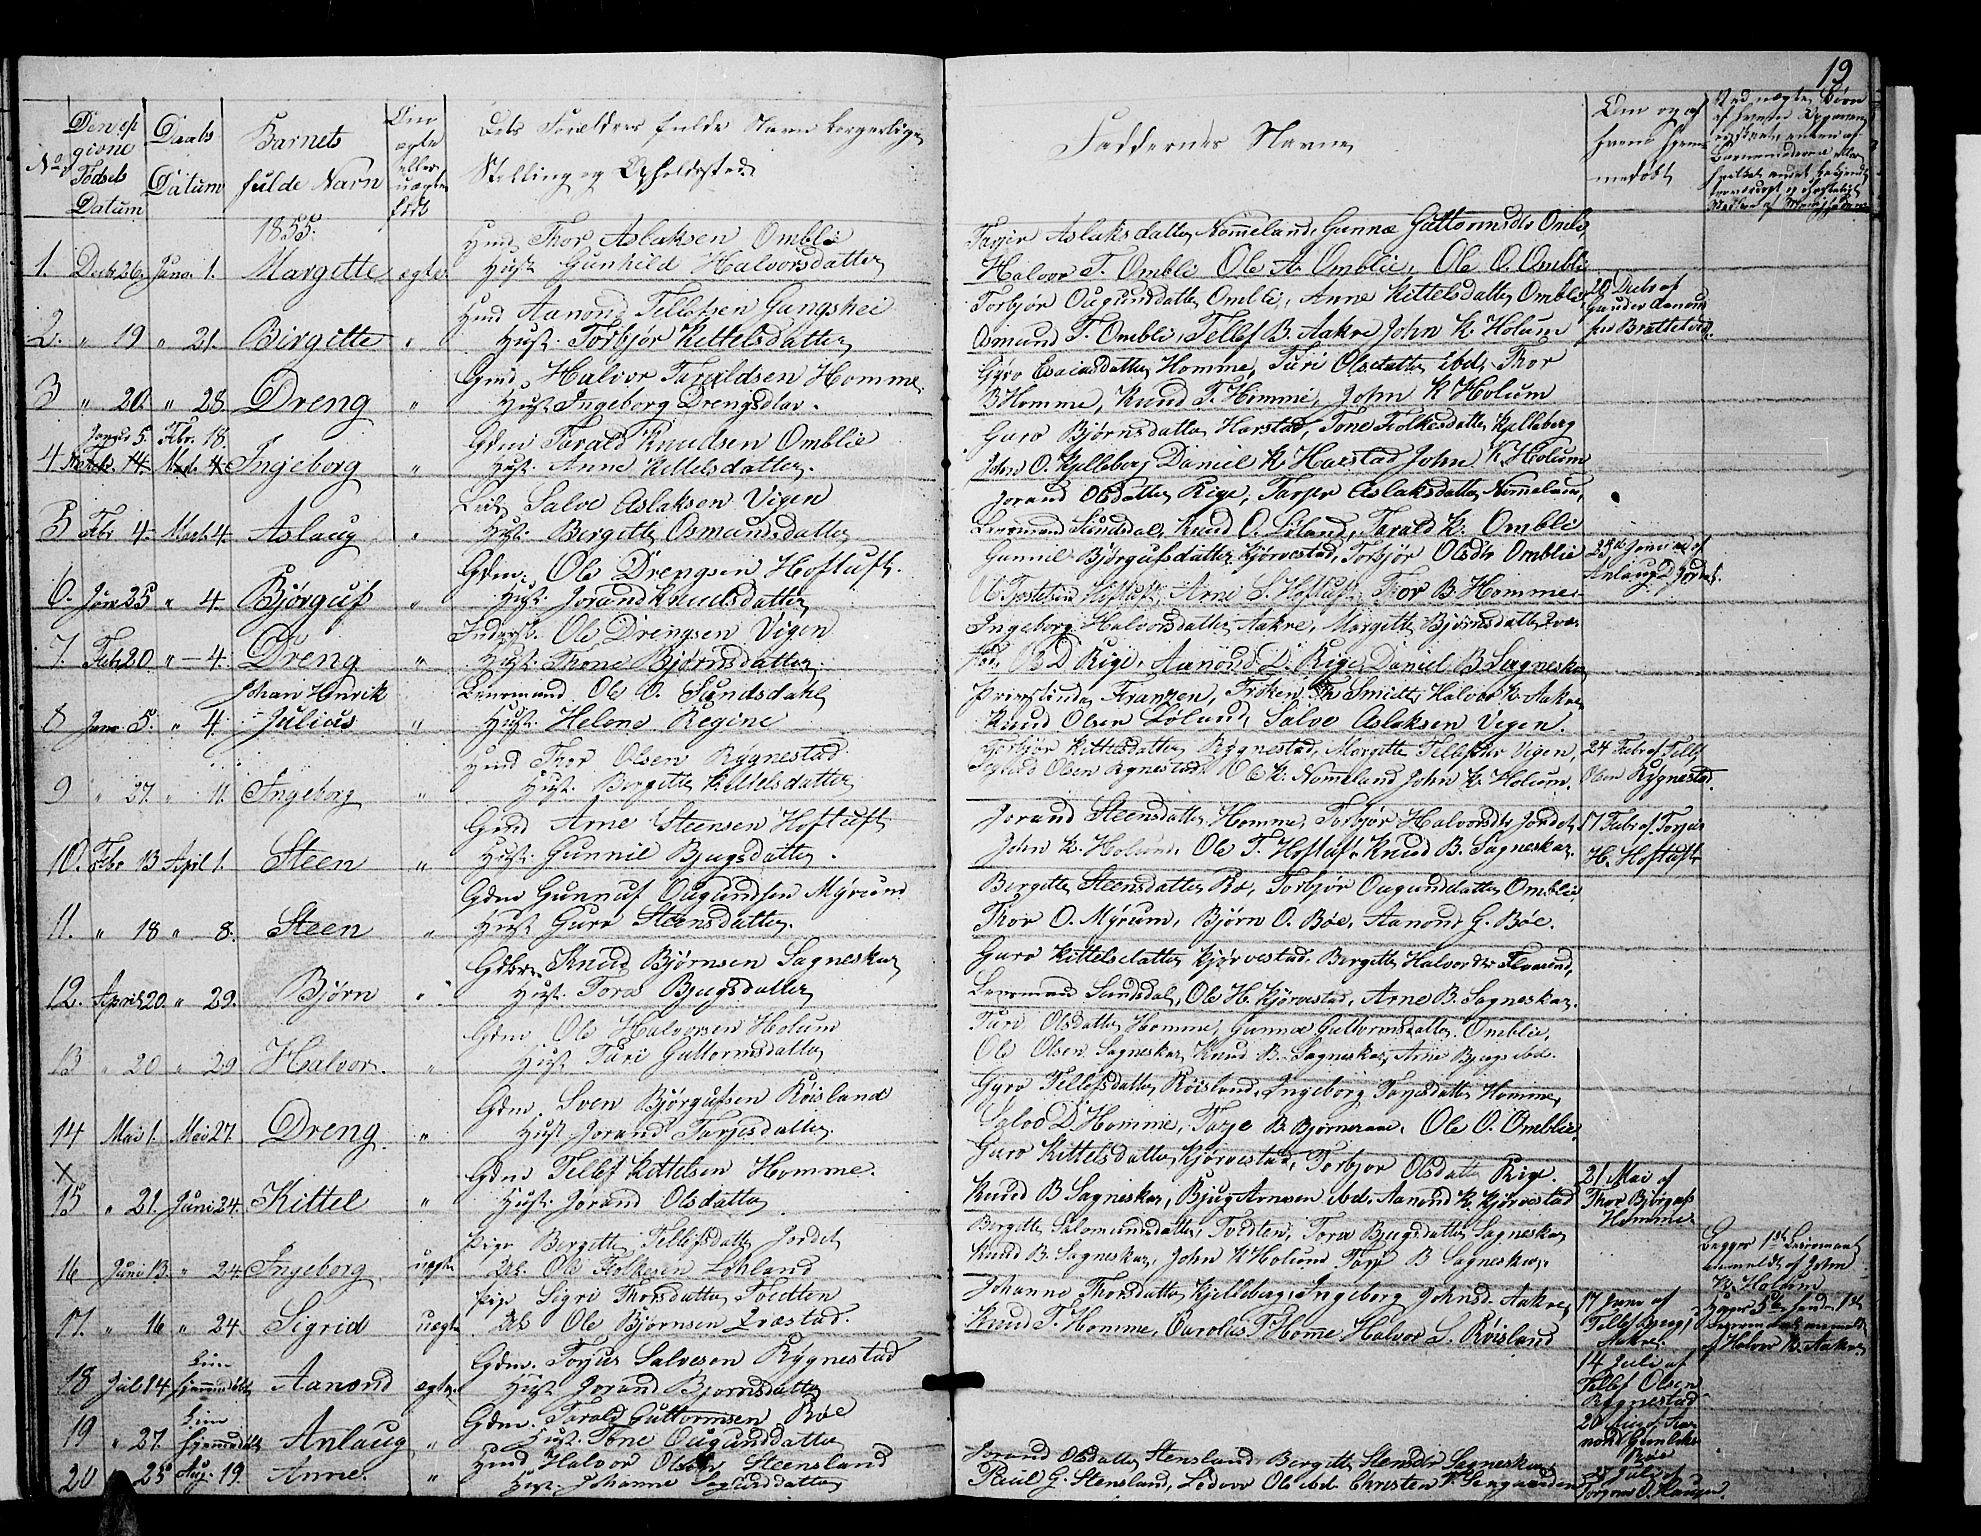 19
No
Den opgivne Fødsels Datum
Daabs Datum
Barnets fulde Navn
Om ægte eller uægte født
Dets Forældres fulde Navne borgerlige Stilling og Opholdssted
Faddernes Navne
Om og af hvem hjemmedøbt
1855.
1. Decbr 26. Janr. 1. Margitte ægte
Hmd Thor Aslaksen Omblie
Hust. Gunhild Halvorsdatter
Torjer Aslaksdatter Nomeland, Gunne Guttormsdtr Omblie,
Halvor T. Omblie, Ole A. Omblie, Ole O. Omblie
2. " 19 " 21. Birgitte "
Hmd Aanond Tellefsen Gangshei
Hust. Torbjør Kittelsdatter
Torbjør Ougundsdatter Omblie, Anne Kittelsdatter Omblie
Osmund T. Omblie, Tellef B. Aakre, John K. Holum
20 Decbr af Gunder Aanonsen Bratteland.
3 " 20. " 28. Dreng "
Gmd. Halvor Taraldsen Homme.
Hust. Ingeborg Drengsdtr.
Gyro Esaiasdatter Homme, Turi Olsdatter ibd, Thor
B Homme, Knud T. Homme, John K Holum
4 Januar 5. Febr. 18. Ingeborg "
Gdm Tarald Knudsen Omblie
Hust. Anne Kittelsdatter.
Guro Bjørnsdatter Harstad, Tone Folkesdatter Kjelleberg
John O. Kjelleberg Daniel K. Harstad John K. Holum
5 Febr 4. Marts 4. Aslaug "
Salve Aslaksen Vigen
Hust. Bergitte Osmundsdatter
Jorand Olsdatter Rige, Torjer Aslaksdatter Nomeland,
Lensmand Sundsdal, Knud O. Løland, Tarald K. Omblie
6. Janr 25 " 4. Bjørguf "
Gdm. Ole Drengsen Hoftuft.
Hust. Jorand Knudsdatter
Gunnil Bjørgufsdatter Kjørvestad, Torbjør Olsdtr Omblie
Hoftuft, Arne S. Hoftuft, Thor B. Homme
25de Januar af Anlaug D. Jordet.
7. Febr 20 " 4. Dreng "
Inderst. Ole Drengsen Vigen
Hust. Thone Bjørnsdatter
Ingeborg Halvorsdatter Aakre, Margitte Bjørnsdatter Qvæ-
stad, Ole D Rige, Aanond D. Rige, Daniel B. Sagneskar
8 Janr 5. " 4. Johan Henrik Julius "
Lensmand Ole O. Sundsdahl
Hust. Helene Regine
Franzen, Frøken Smitt, Halvor K. Aakre
Knud Olsen Løland, Salve Aslaksen Vigen.
9 " 27. " 11. Ingeborg "
Hmd Thor Olsen Rygnestad
Hust. Bergitte Kittelsdatter
Torbjør Kittelsdatter Rygnestad, Margitte Tellefsdtr Vigen,
Olsen Rygnestad, Ole K. Nomeland, John K. Holum.
24 Febr af Tellef Olsen Rygnestad.
10. Febr 13 April 1. Steen "
Gmd Arne Steensen Hoftuft
Hust. Gunnil Bjugsdatter.
Jorand Steensdatter Homme, Torbjør Halvorsdtr Jordet
John K. Holum. Ole T. Hoftuft. Knud B. Sagneskar.
17 Febr af Torjus H. Hoftuft
11. " 18 " 8. Steen "
Gdm Gunnuf Ougundsen Myrum
Hust. Guro Steensdatter.
Bergitte Steensdatter Bø, Torbjør Ougundsdatter Omblie
Thor O. Myrum, Bjørn O. Bøe, Aanond G. Bøe.
12. April 20 " 29. Bjørn "
Knud Bjørnsen Sagneskar
Hust. Tora Bjugsdatter
Guro Kittelsdatter Kjørvestad. Bergitte Halvorsdtr
Lensmand Sundsdal, Ole H. Kjørvestad, Arne B. Sagneskar.
13 " 20 " 29 Halvor. "
Gdm Ole Halvorsen Holum
Hust. Turi Guttormsdatter
Turi Olsdatter Homme, Gunne Guttormsdatter Omblie,
Ole Olsen Sagneskar, Knud B. Sagneskar, Arne Bjugs ibd.
14 Mai 1. Mai 27. Dreng "
Gdm. Sven Bjørgufsen Røisland
Hust. Jorand Tarjesdatter
Gyro Tellefsdatter Røisland, Ingeborg Tarjesdatter Homme,
D. Homme, Tarje B. Bjørneraae. Ole O. Omblie.
15 x " 21. Juni 24. Kittel "
Gdm Tellef Kittelsen Homme.
Hust. Jorand Olsdatter
Guro Kittelsdatter Kjørvestad, Torbjør Olsdatter Rige.
Knud B Sagneskar, Bjug Arnesen ibd, Aanond K. Kjørvestad
21 Mai af Thor Bjørgufs Homme
16 Juni 13. " 24. Ingeborg uægte
Pige Bergitte Tellefsdatter Jordet
Ole Folkesen Løhland
Bergitte Salomonsdatter, Tveiten, Tora Bjugsdatter Sagneskar
Knud B. Sagneskar, John K Holum Tarje B Sagneskar.
Begges 1st Leiermaal anmeldt af John K. Holum
17. " 16 " 24. Sigrid uægte
Pige Sigri Thorsdatter Tveiten
Ole Bjørnsen Qvæstad.
Johanne Thorsdatter Kjelleberg, Ingeborg Johnsd. Aakre
Knud T. Homme, Carolus T Homme Halvor L. Røisland
17 Juni af Tellef Aakre.
af Halvor K. Aakre
18 Juli 14 hjemmedøbt Aanond ægte
Gdm. Torjus Salvesen Rygnestad
Hust. Jorand Bjørnsdatter
14 Juli af Tellef Olsen Rygnestad
19 " 27. hjemmedøbt Anlaug "
Gdm. Tarald Guttormsen Bøe
Hust. Tone Ougundsdatter
20 " 25 Aug. 19. Anne. "
Hmd Halvor Olsen Steensland
Hust. Johanne Sigurdsdatter
Jorand Olsdatter Stensland Bergitte Stensdtr Sagneskar
Paul G. Stensland, Ole ibd. Christen